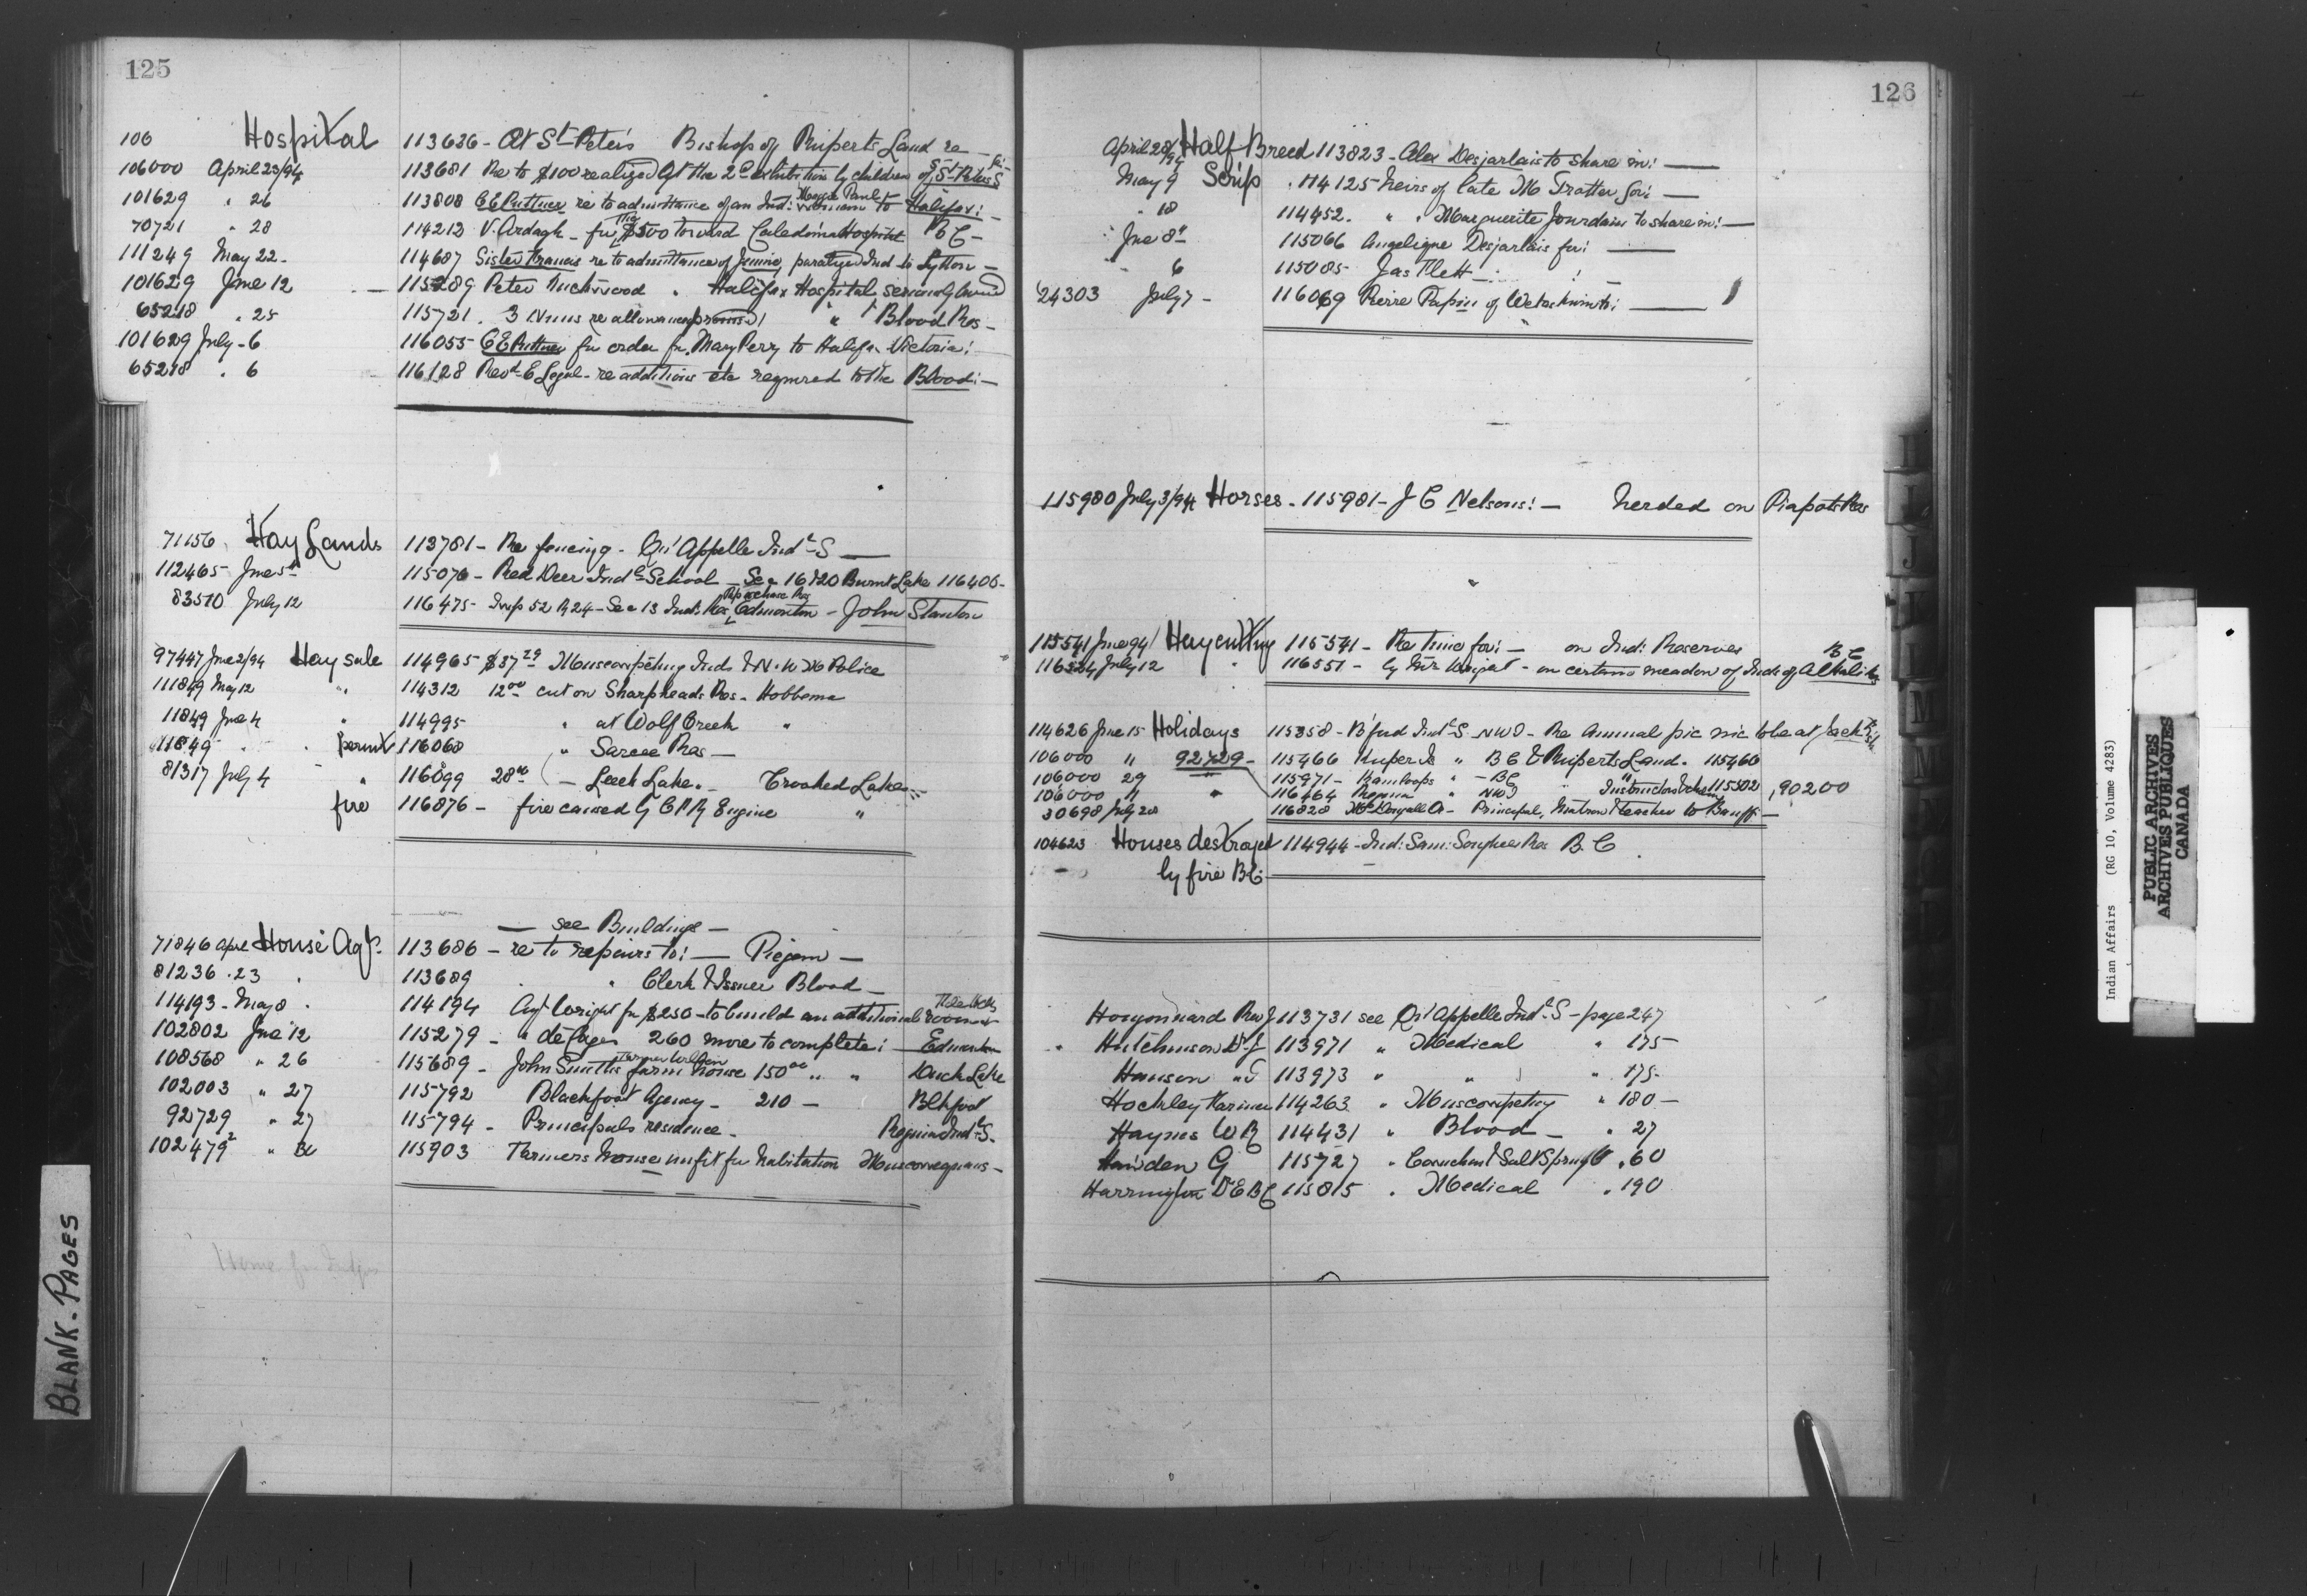 125
106 Hospital 113626 - At St Peter's Bishop of Ruperts Land re -
106000 April 23/94 113681 Re to $100 realized at the 2d exhibition by children of St Peters I S
101629 " 26 113808 C E Puttner re to admittance of an Ind: woman to Halifax: -
70721 " 28 114213 V. Ardagh - for $500 toward Caledonia Hospital B C -
111249 May 22 - 114687 Sister Francis re to admittance of Jimmie, paralyzed Ind to Lytton -
101629 June 12 - 115289 Peter " Halifax Hospital seriously
65218 " 25 115721 . 3 Nuns re allowance promised " Blood Res -
101629 July - 6 116055 C E Puttner for order for Mary Perry to Halifax Victoria:
65218 " 6 116128 Revd E Legal - re additions etc required to the Blood: -
71156 Hay Lands 113781 - Re fencing - Qu'Appelle Indl S -
112465 June 5th 115076 - Red Deer Indl School - Sec 16 & 20 Burnt Lake 116406 -
83570 July 12 116475 - Twp 52 R 24 - Sec 13 Ind: Res Papaschase Res Edmonton - John Stanton
97447 June 2/94 Hay sale 114965 $37 29 Muscowpetung Inds & N. W M Police
111849 May 12 " 114312 12 00 cut on Sharpheads Res - Hobbema
11849 June 4 " 114995 " at Wolf Creek "
11849 " permit 116068 " Sarcee Res -
81317 July 4 " 116099 28 00 - Leech Lake " - Crooked Lakes
fire 116876 - fire caused by C P R Engine "
- see Buildings -
71846 Apl House Agts 113686 - re to repairs to: - Piegan -
81236 . 23 . 113689 . " Clerk & Issuer Blood -
114193 - May 8 . 114194 Agt Wright for $250 - to build an additional room
102802 June 12 115279 - " de Cazes 260 more to complete: - Edmonton
108568 " 26 115689 - John Smiths farm house 150 00 " " Duck Lake
102003 " 27 115792 Blackfoot Agency - 210 - Blkfoot
92729 " 27 115794 - Principals residence - Regina Indl S.
102479 2 " 30 115903 Farmers house unfit for habitation Muscowequans -
126
April 28/94 Half Breed 113823 - Alex Desjarlais to share in: -
May 9 Scrip 114125 heirs of late M Trotter for: -
" 18 114452 . " " Marguerite Jourdain to share in: -
June 8th 115066 Angelique Desjarlais for: -
" 6 115085 Jas Flett - : !
24303 July 7 - 116069 Pierre Papin of Wetaskiwin: -
115980 July 3/94 Horses - 115981 - J C Nelsons: - herded on Piapots Res
115541 June/94 Hay cutting 115541 - Re time for: - on Ind: Reserves B C
116524 July 12 " 116551 - by Mr Wright - on certain meadow of Inds of Alkali
114626 June 15 Holidays 115358 - B'ford Indl S - NWT - Re Annual pic nic to be at Jack fish
106000 " 92729 - 115466 Kuper Is " B C & Ruperts Land. 115460
106000 29 " 115971 - Kamloops " - BC " Instructors & clerk 115302 , 90200
106000 11 " 116464 Regina " NWT
30698 July 20 116828 McDougall O - Principal, Matron & teacher to Banff -
104623 Houses destroyed 114944 - Ind: Sam: Songhees Res B. C
by fire B C:
Hugonnard Rev J 113731 see Qu'Appelle Indl S - page 247
" Hutchinson Dr J 113971 " Medical " 175 -
Hanson " T 113973 " " " 175 -
Hockley Farmer 114263 " Muscowpetung " 180 -
Haynes W R 114431 " Blood - " 27
Hawden G 115727 " Cowichan & Salt Spring " 60
Harrington Dr E B C 115815 " Medical " 190
BLANK - PAGES
Indian Affairs (RG 10, Volume 4283)
PUBLIC ARCHIVES
ARCHIVES PUBLIQUES
CANADA